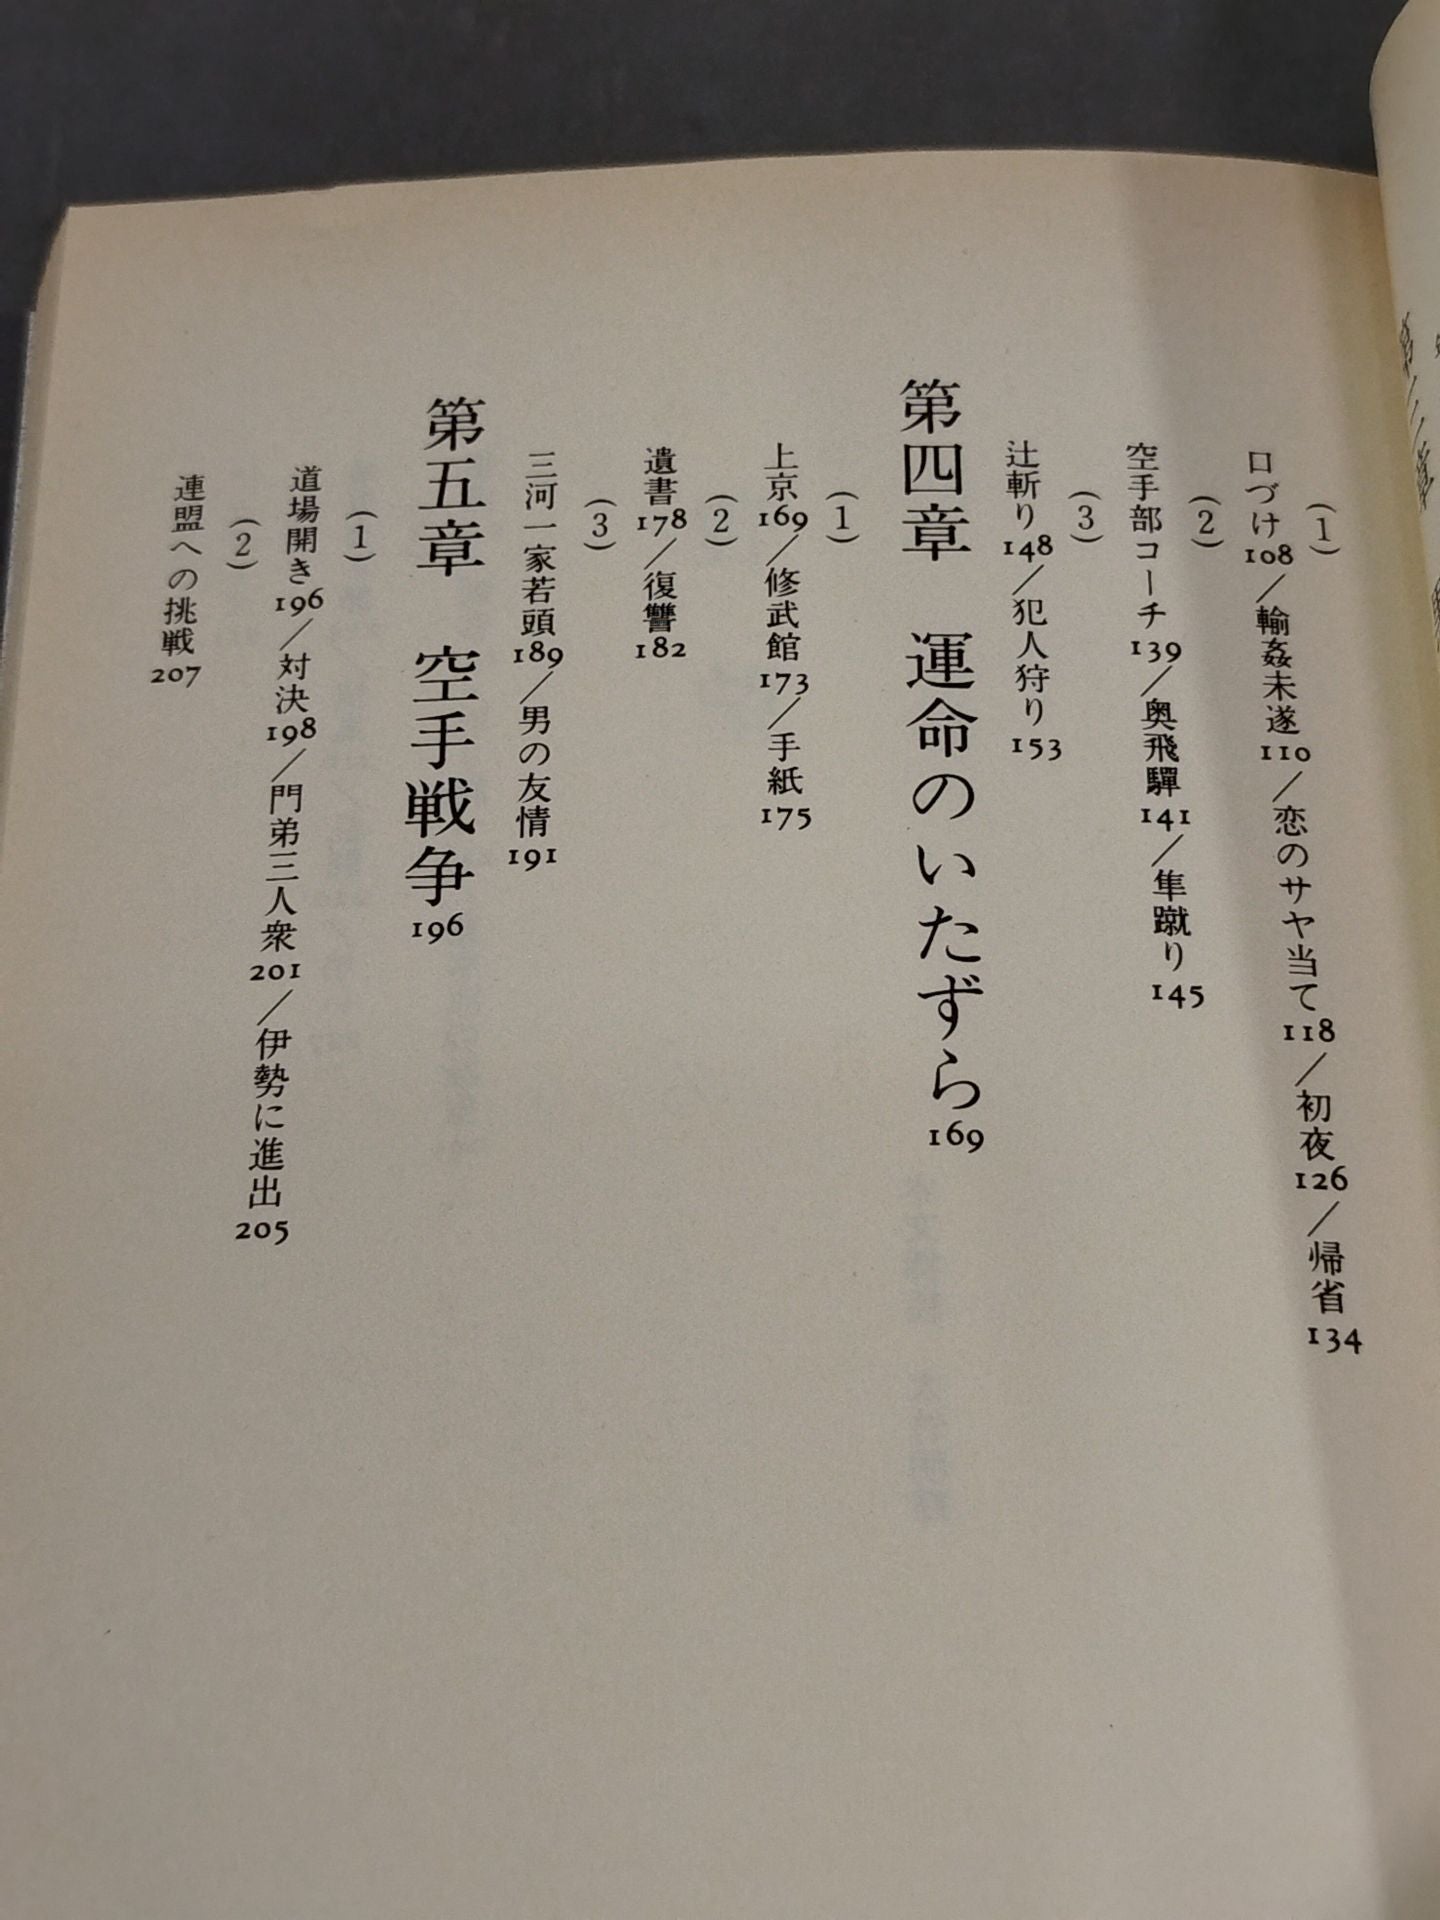 (1)
口づけ108／輪姦未遂110／恋のサヤ当て118／初夜126／帰省134
(2)
空手部コーチ139／奥飛驒141／隼蹴り145
(3)
辻斬り148／犯人狩り153
第四章　運命のいたずら169
(1)
上京169／修武館173／手紙175
(2)
遺書178／復讐182
(3)
三河一家若頭189／男の友情191
第五章　空手戦争196
(1)
道場開き196／対決198／門弟三人衆201／伊勢に進出205
(2)
連盟への挑戦207